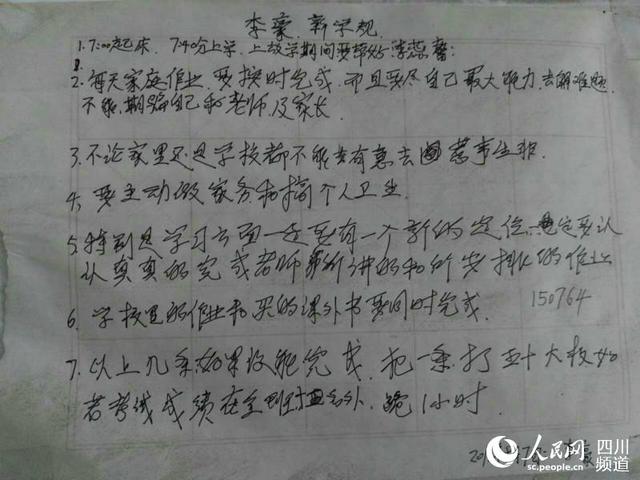 李豪新家规
1. 7:00起床 7:40分上学、上放学期间要带好李蕊馨:
2. 每天家庭作业、要按时完成、而且要尽自己最大能力、去解难题
不能、期骗自己和老师及家长
3. 不论家里还是学校都不能去有意去惹事生非.
4. 要主动做家务和搞个人卫生
5. 特别是学习方面一定要有一个新的定位、一定要认
认真真的完成老师所讲的和所安排的作业
6. 学校里的作业和买的课外书要同时完成.
150764
7. 以上几条如果没能完成、把一条打五十大板如
若考试成绩在全班 名外、跪1小时.
人民网 四川频道
sc.people.com.cn